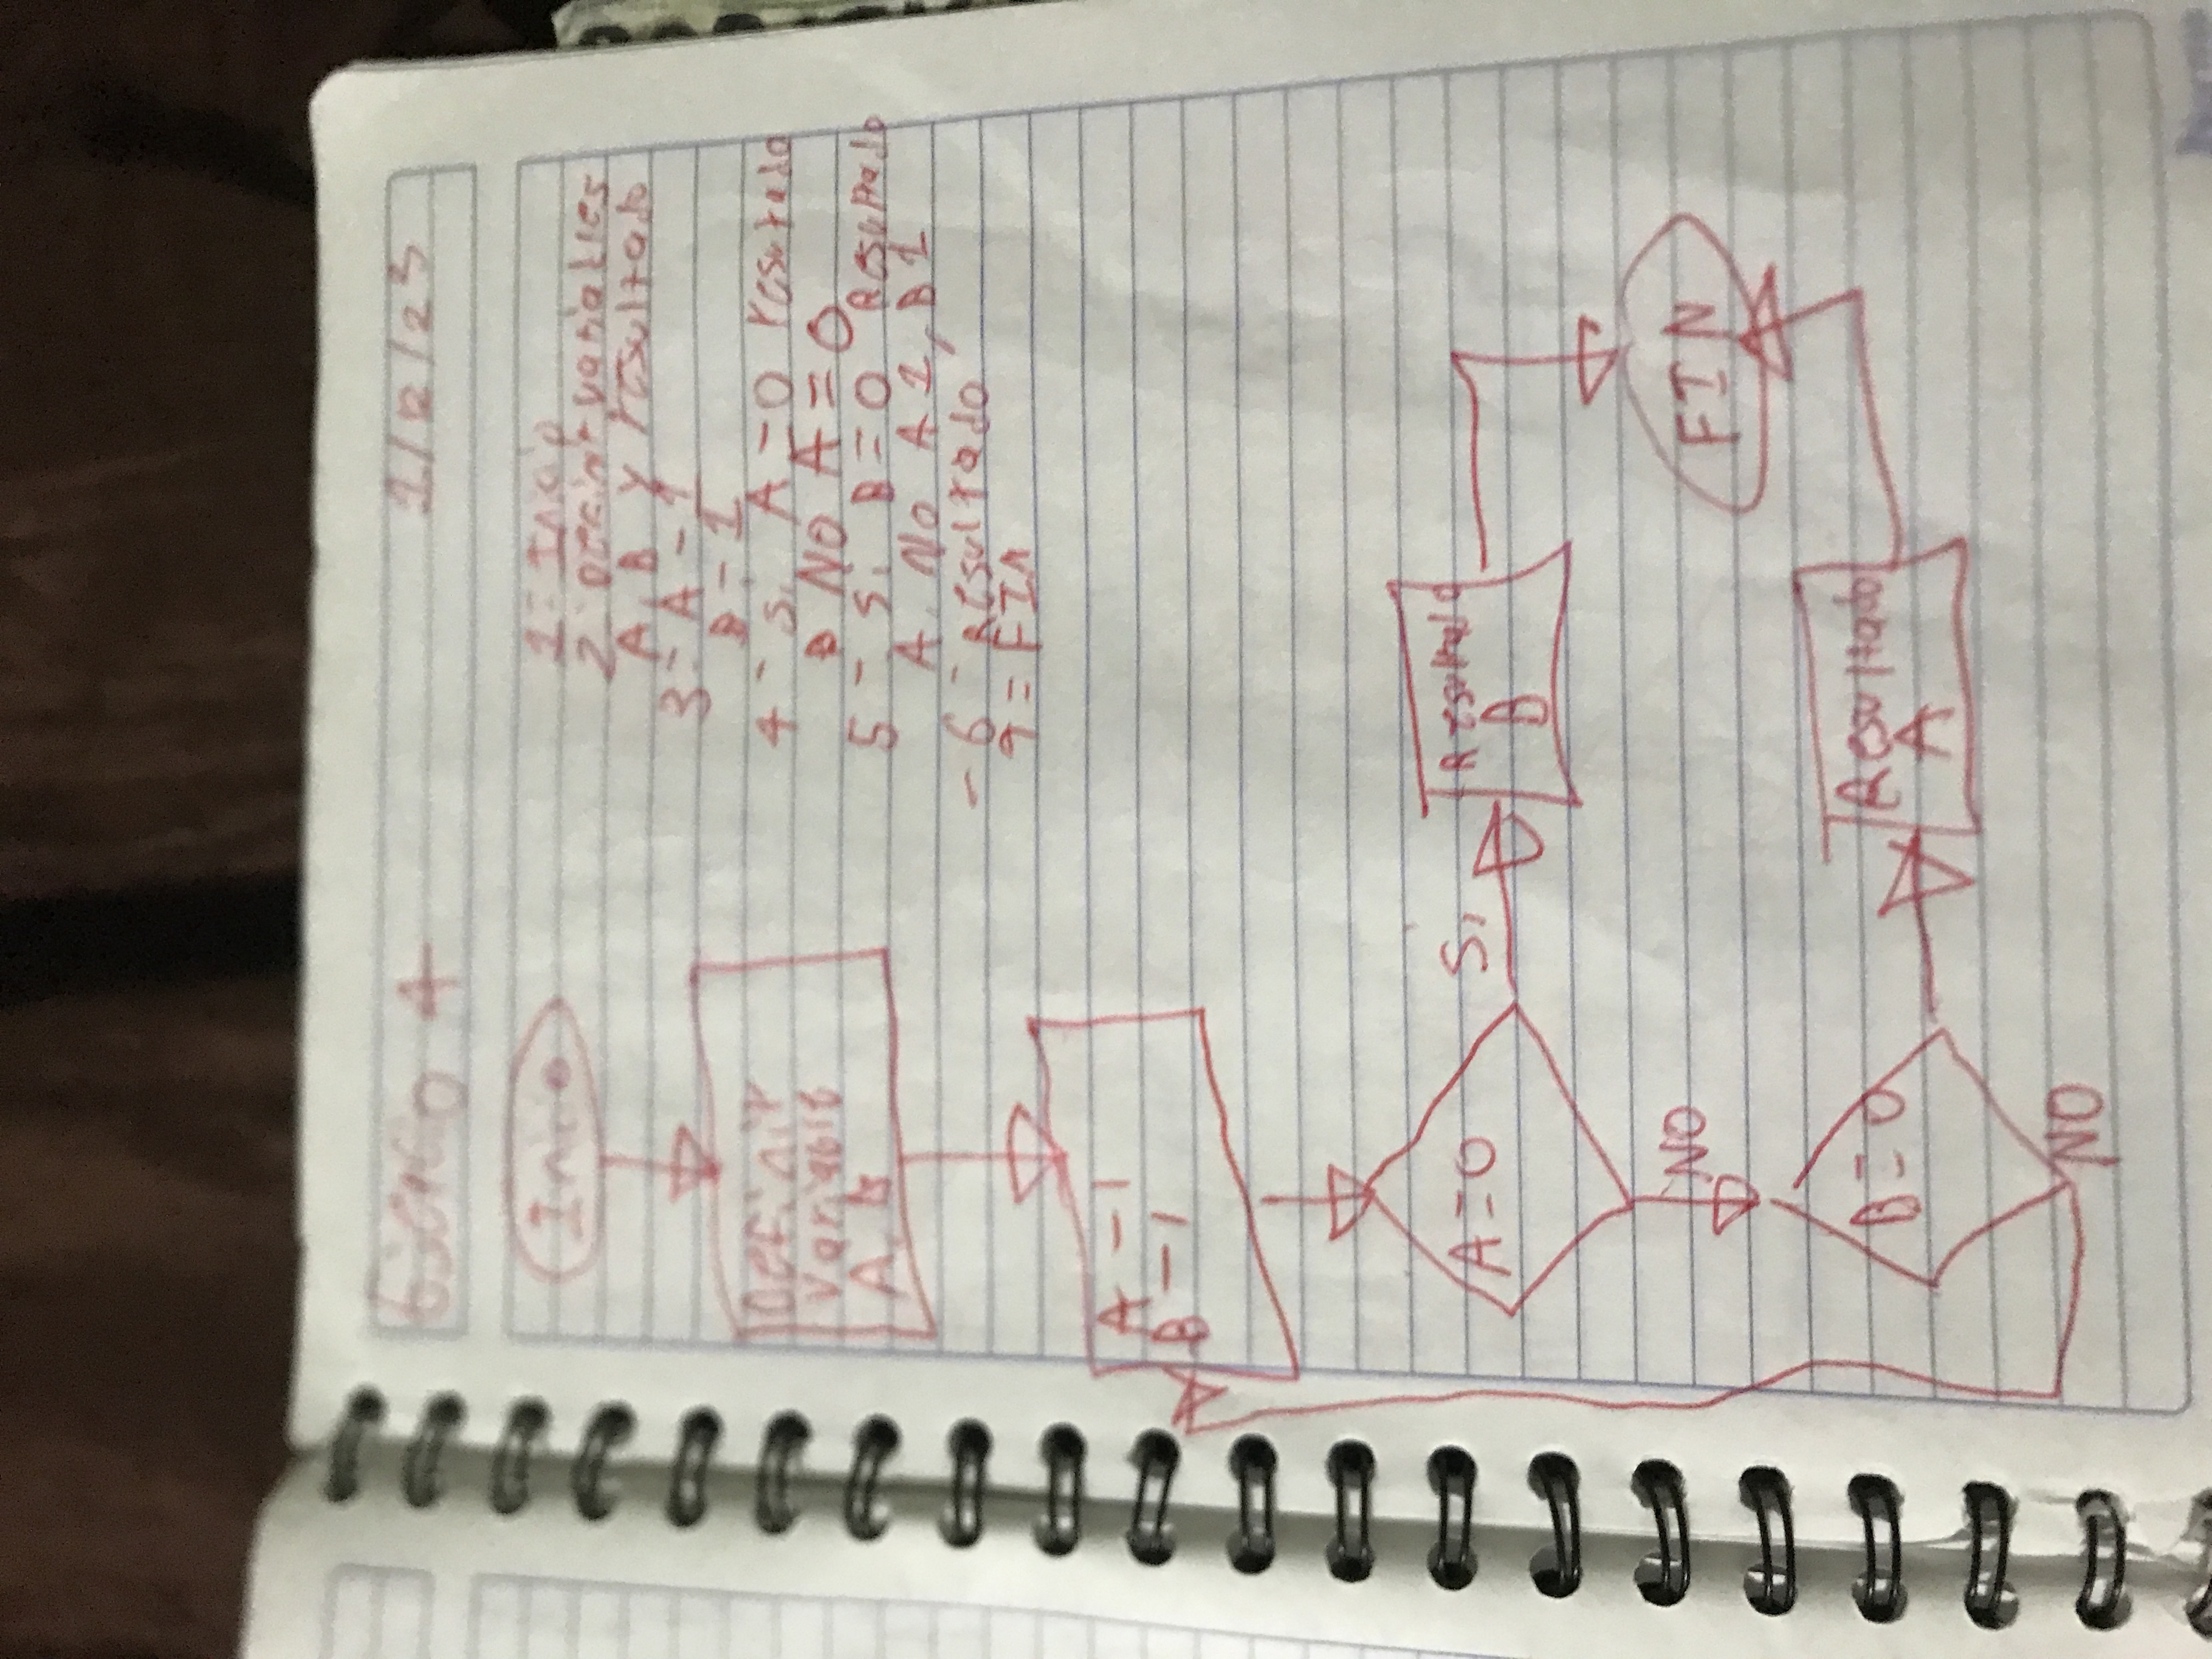 Ejercicio 4
1/12/23
1- Inicio
2- Definir variables
A, B y resultado
3- A - 1
B - 1
4- Si A = 0 resultado
B No A = 0
5- Si B = 0 Resultado
A, No A 1, B 1
- 6- Resultado
7= FIN
Inicio
Definir
Variable
A, B
A - 1
B - 1
A = 0
Si
Resultado
B
NO
B = 0
NO
Resultado
A
FIN